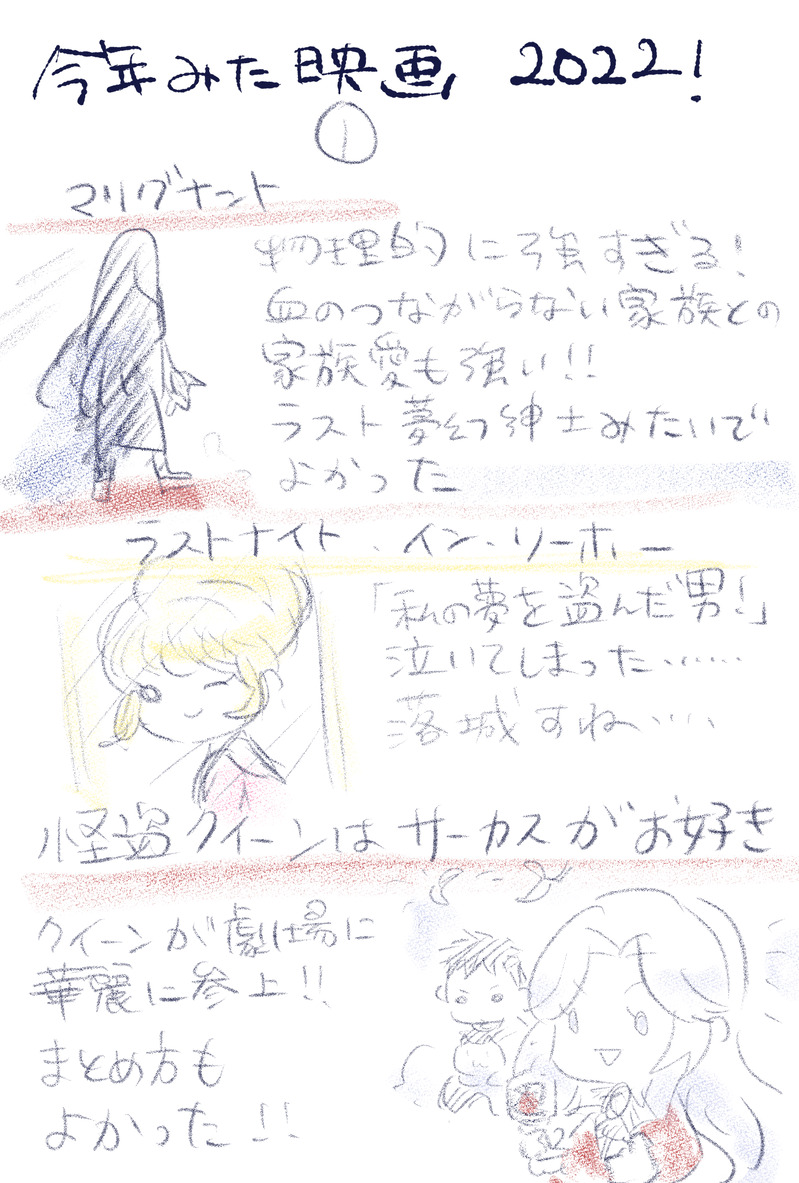 今年みた映画 2022!
①
マリグナント
物理的に強すぎる!
血のつながらない家族との
家族愛も強い!!
ラスト夢幻紳士みたいで
よかった
ラストナイト・イン・ソーホー
「私の夢を盗んだ男!」
泣いてしまった……
落城すね……
怪盗クイーンはサーカスがお好き
クイーンが劇場に
華麗に参上!!
まとめ方も
よかった!!